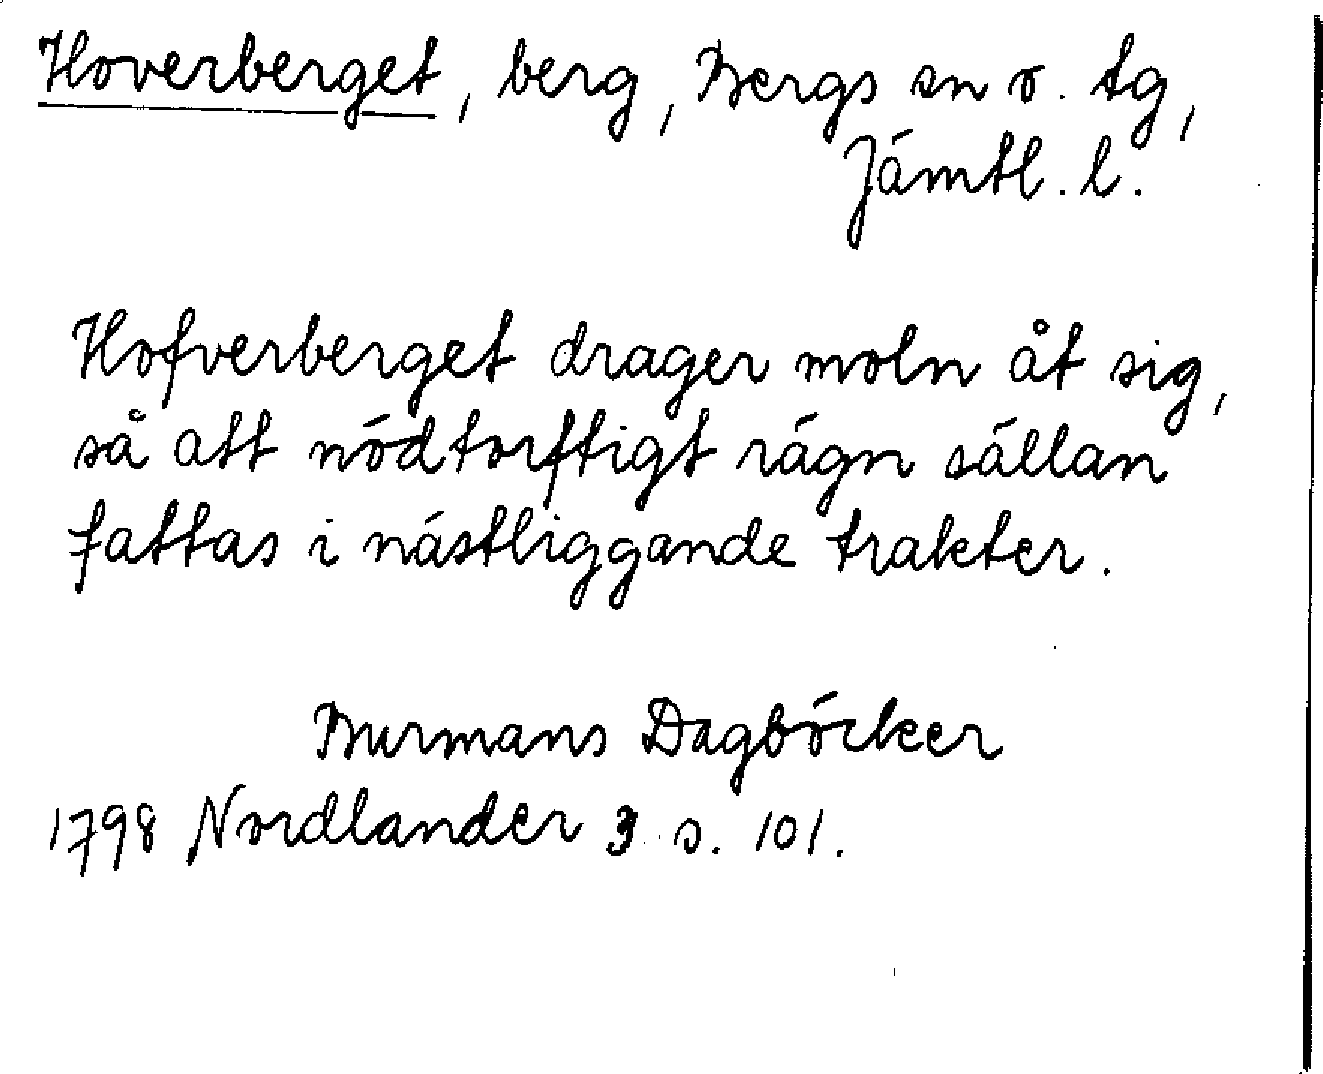 Hoverberget, berg, Bergs sn o. tg,
Jämtl. l.
Hofverberget drager moln åt sig,
så att nödtorftigt rägn sällan
fattas i nästliggande trakter.
Burmans Dagböcker
1798 Nordlander 3 s. 101.